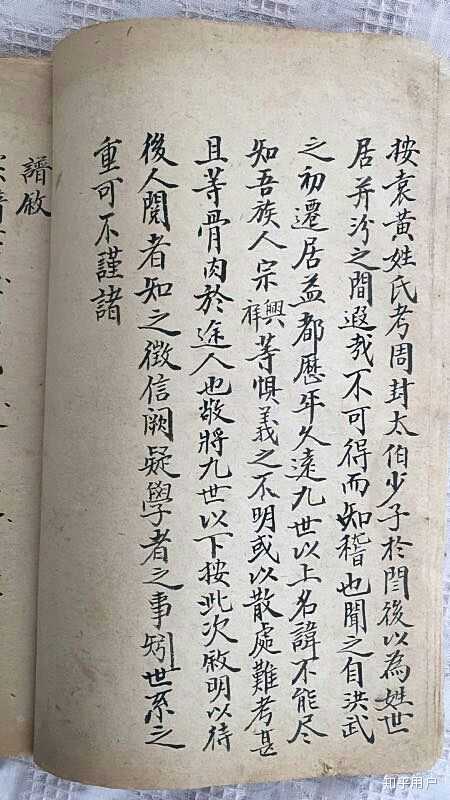 按袁黄姓氏考周封太伯少子於閆後以為姓世
居并汾之間遐哉不可得而知稽也聞之自洪武
之初遷居益都歷年久遠九世以上名諱不能尽
知吾族人宗興祥等惧義之不明或以散處難考甚
且等骨肉於途人也敬將九世以下按此次敘明以待
後人閱者知之徵信阙疑學者之事矧世系之
重可不謹諸
譜敘
知乎用户